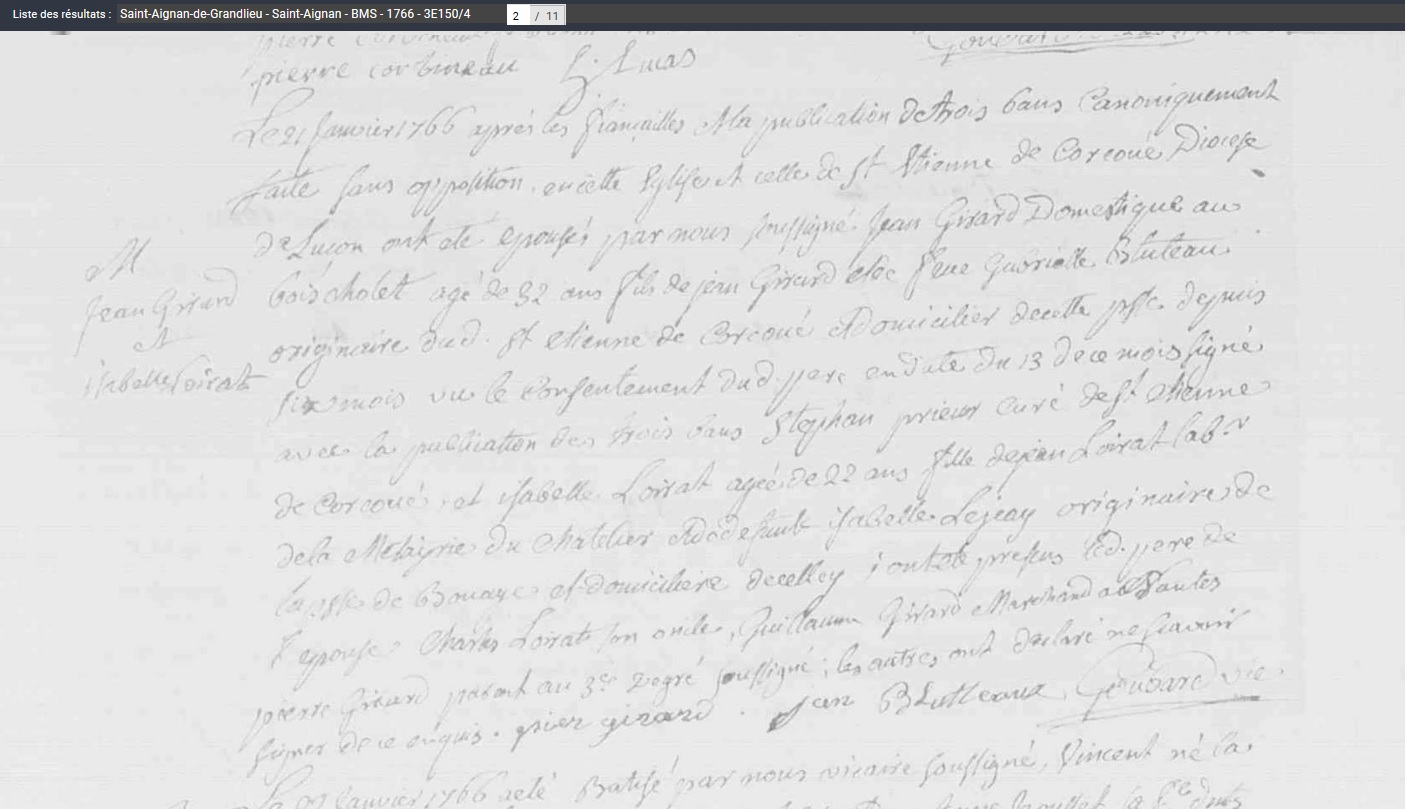 Liste des résultats : Saint-Aignan-de-Grandlieu - Saint-Aignan - BMS - 1766 - 3E150/4 2 / 11
pierre corbineau L. Lucas
Le 21 Janvier 1766 aprés les fiançailles et la publication de trois bans Canoniquement
faite sans opposition, en cette Eglise et celle de St Etienne de Corcoué Diocese
de Luçon ont été epousés par nous soussigné Jean Girard Domestique au
bois cholet agé de 32 ans fils de jean Girard et de feue Gabrielle Bluteau
originaire dud. St etienne de Corcoué et domicilier de cette psse depuis
six mois vu le consentement dud. pere en date du 13 de ce mois signé
avec la publication des trois bans Stephan prieur curé de St etienne
de Corcoué, et isabelle Loirat ageé de 22 ans fille de jean Loirat labr
de la Metairie du Chatelier et de defunte isabelle Lejeay originaire de
la psse de Bouaye et domiciliere de celle cy ; ont eté presens led. pere de
l'epouse Charles Loirat son oncle, Guillaume Girard Marchand a Nantes
pierre Girard parent au 3e degré soussigné ; les autres ont declaré ne scavoir
signer de ce enquis. pier girard . jan Blutteaux Goudard vic.
M
Jean Girard
et
isabelle Loirat
Le 22 Janvier 1766 a eté Batisé par nous vicaire soussigné, Vincent né la